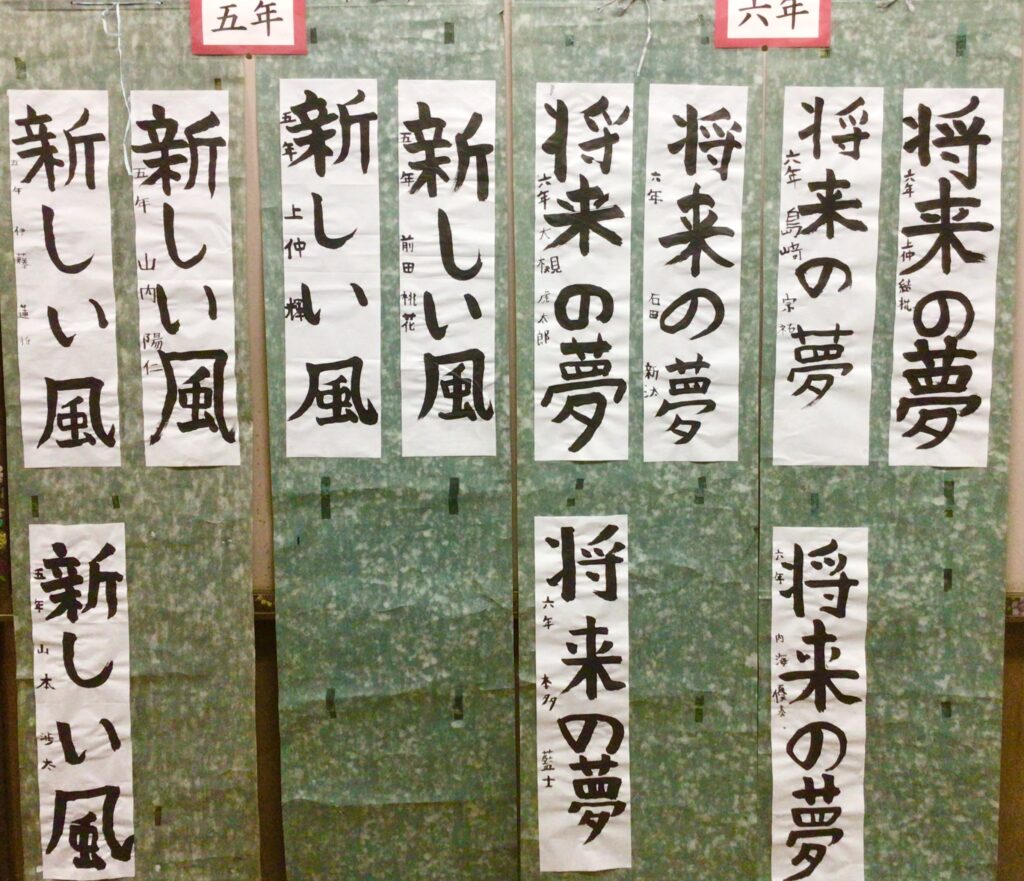 五年
六年
新しい風
五年 伊藤蓮
新しい風
五年 山内陽仁
新しい風
五年 上仲輝
新しい風
五年 前田桃花
将来の夢
六年 大槻虎太郎
将来の夢
六年 石田新太
将来の夢
六年 島﨑宗祐
将来の夢
六年 上仲
新しい風
五年 山本渉太
将来の夢
六年 本多藍士
将来の夢
六年 内海優奏